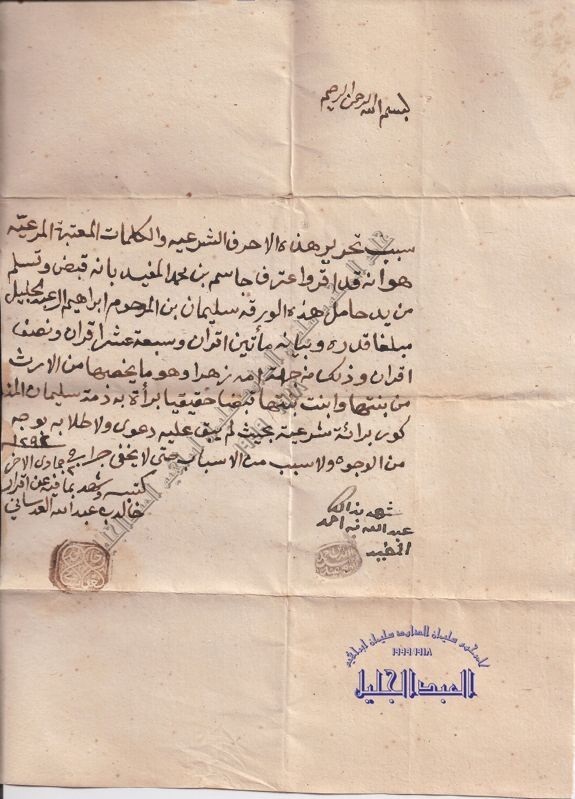 بسم الله الرحمن الرحيم
سبب تحرير هذه الاحرف الشرعيه والكلمات المعتبرة المرعيّه
هو انه قد اقر واعترف جاسم بن محمد المفيد بانه قبض وتسلم
من يد حامل هذه الورقه سليمان بن المرحوم ابراهيم العبدالجليل
مبلغا قدره وبيانه مأتين اقران وسبعة عشر اقران ونصف
اقران وذلك من جملة امه زهرا وهو ما يخصها من الارث
من بنتها وابنت بنتها قبضا حقيقيا برأة به ذمة سليمان المذ
كور برائة شرعية بحيث لم يبق عليه دعوى ولا طلابه بوجه
من الوجوه ولا سبب من الاسباب حتى لا يخفى جرا في جمادى الاخر ١٢٩٣
كتبه وشهد بما فيه عن اقرار
خالد بن عبدالله العدساني
شهد بذالك
عبدالله بن احمد
المفيد
سليمان ابراهيم
١٩١٨ ١٩٩٩
العبدالجليل